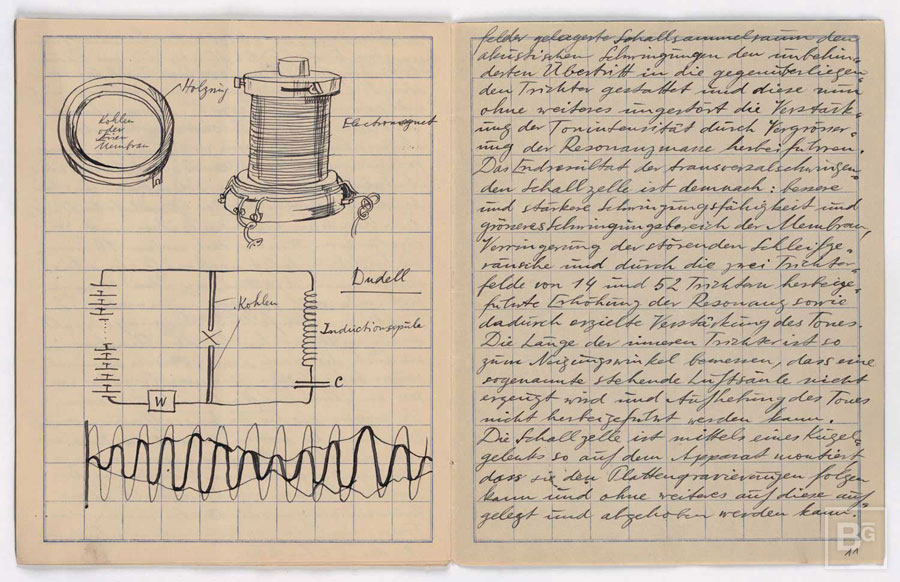 Holzring
Kohlen
oder
Eisen
Membran
Electromagnet
Dudell
Kohlen
Inductionsspule
C
W
felder gelagerte Schallsammelraum den
akustischen Schwingungen den unbehin-
derten Übertritt in die gegenüberliegen-
den Trichter gestattet und diese nun
ohne weiteres ungestört die Verstärk-
ung der Tonintensität durch Vergrösser-
ung der Resonanzmasse herbeiführen.
Das Endresultat der transversalschwingen-
den Schallzelle ist demnach: bessere
und stärkere Schwingungsfähigkeit und
grösseres Schwingungsbereich der Membran,
Verringerung der störenden Schleifge-
räusche und durch die zwei Trichter-
felde von 14 und 52 Trichtern herbeige-
führte Erhöhung der Resonanz sowie
dadurch erzielte Verstärkung des Tones.
Die Länge der inneren Trichter ist so
zum Neigungswinkel bemessen, dass eine
sogenannte stehende Luftsäule nicht
erzeugt wird und Aufhebung des Tones
nicht herbeigeführt werden kann.
Die Schallzelle ist mittels eines Kugel-
gelenks so auf dem Apparat montiert
dass sie den Plattengravierungen folgen
kann und ohne weiteres auf diese auf-
gelegt und abgehoben werden kann.
11
BG